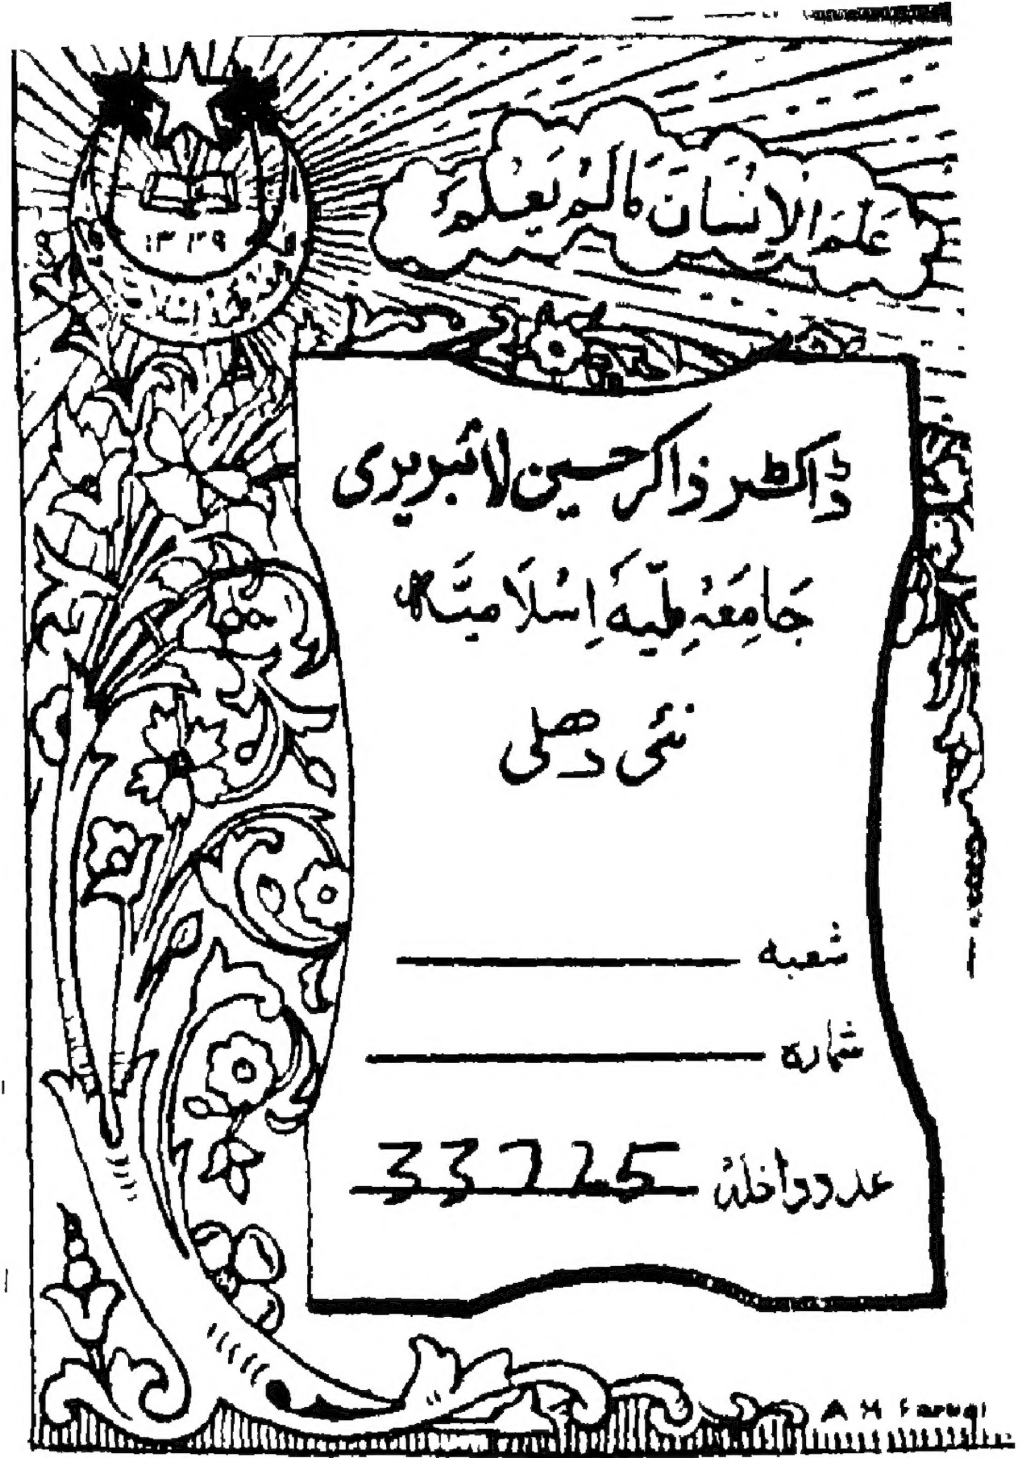 عَلَّمَ الْاِنْسَانَ مَا لَمْ يَعْلَمْ
۱۳۳۹
ڈاکٹر ذاکر حسین لائبریری
جَامِعَہ مِلّیَہ اِسْلَامیَّہ
نئی دھلی
شعبہ
شمارہ
عدد داخلہ 33725
A H Faruqi